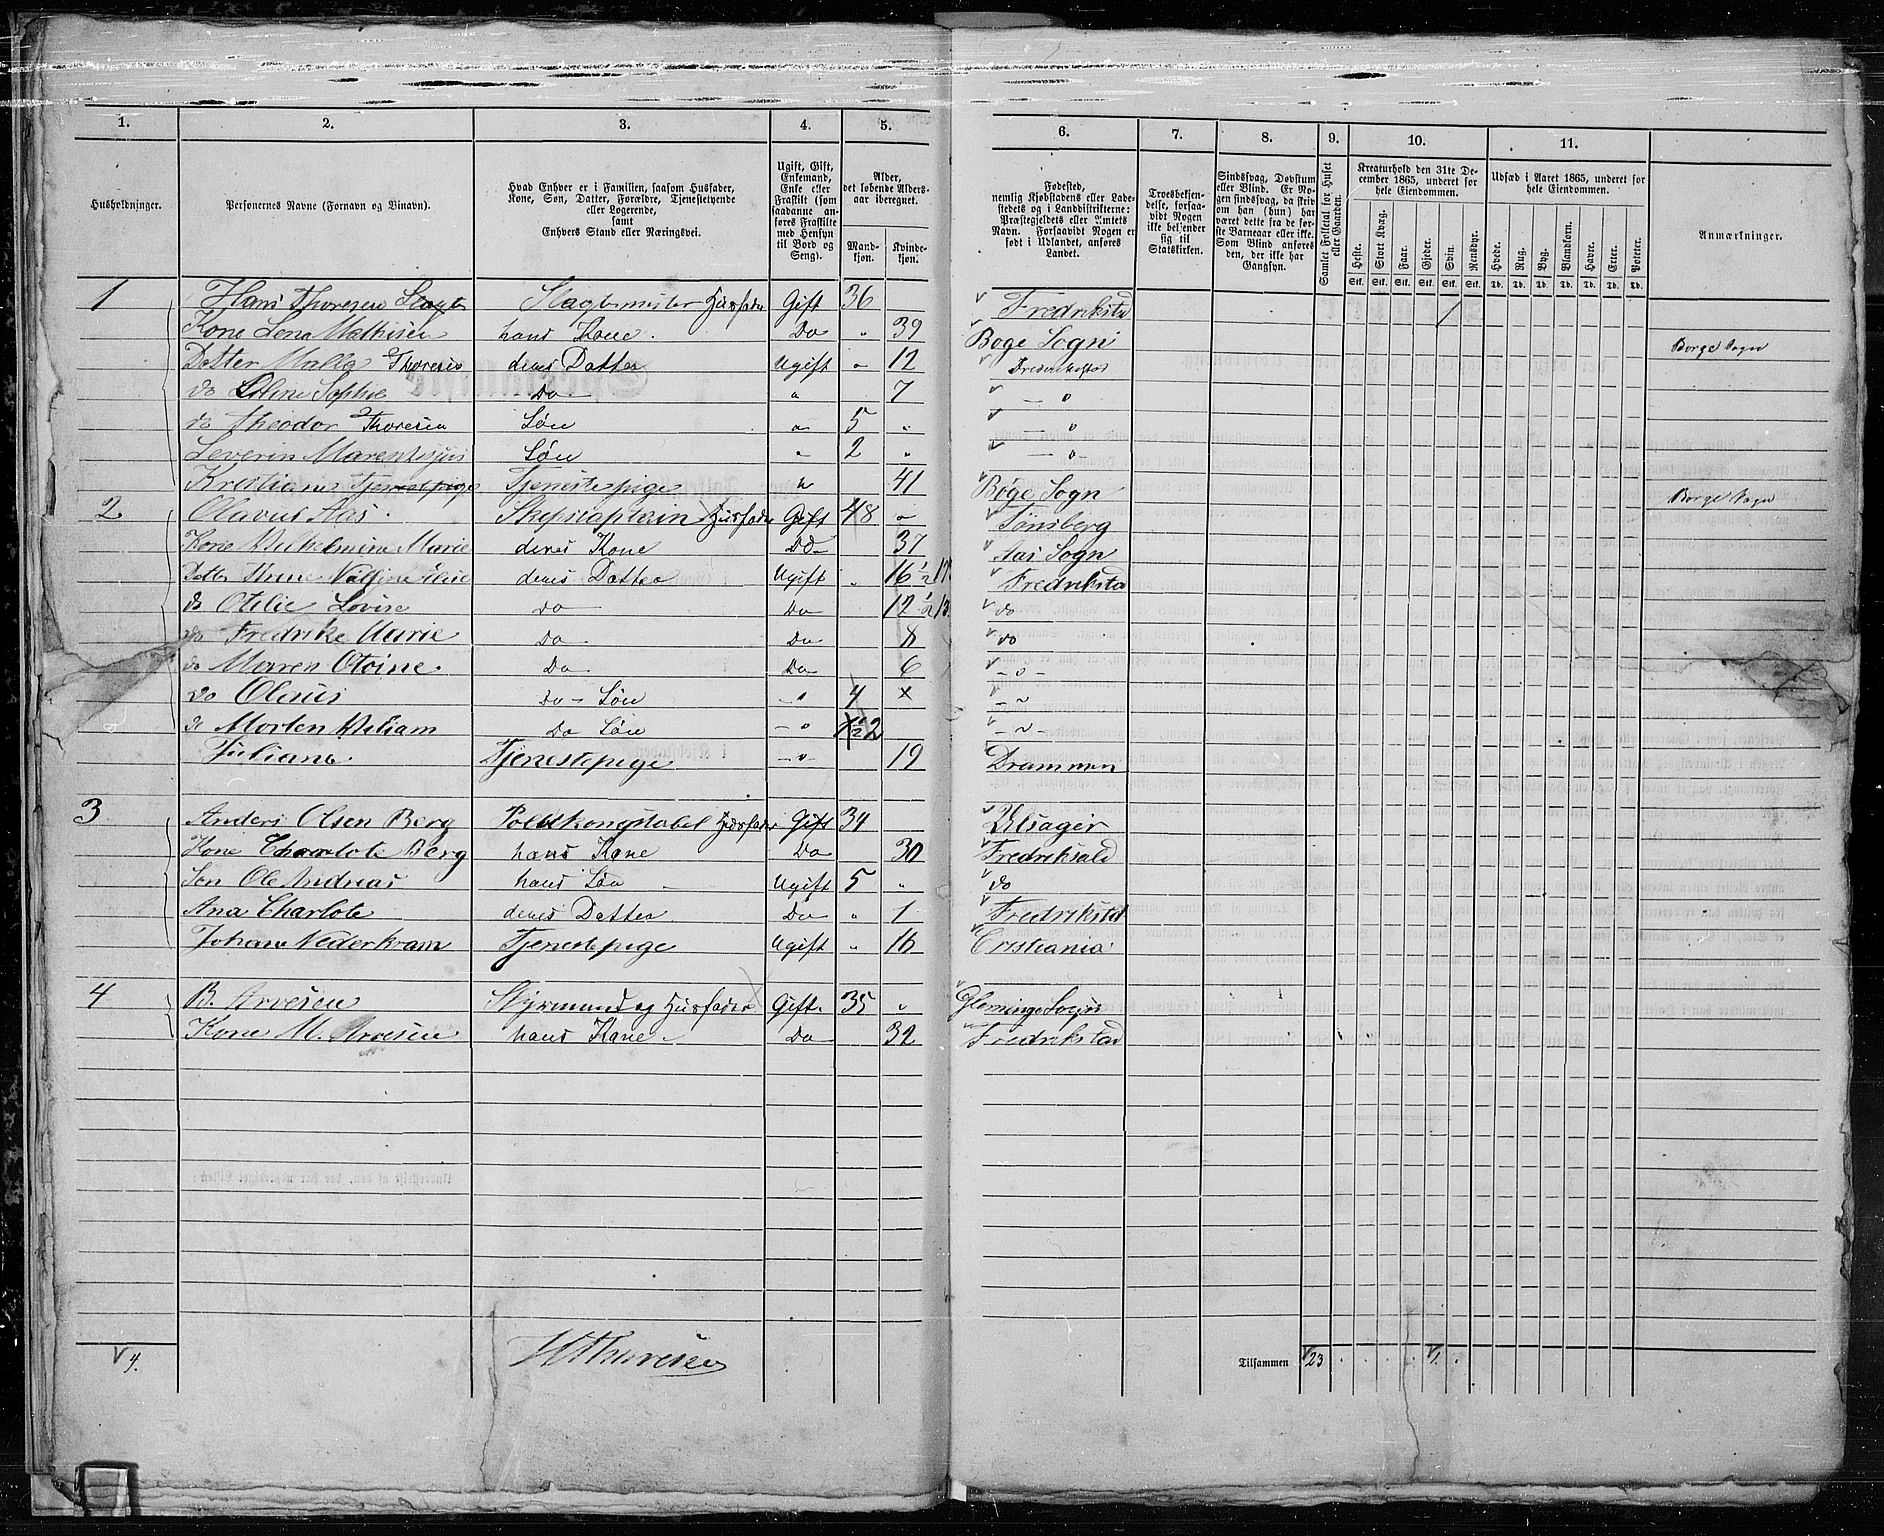 1. 2. 3. 4. 5. 6. 7. 8. 9. 10. 11.
Husholdninger.
Personernes Navne (Fornavn og Tilnavn).
Hvad Enhver er i Familien, saasom Husfader,
Kone, Søn, Datter, Forældre, Tjenestetyende
eller Logerende,
samt
Enhvers Stand eller Næringsvei.
Ugift, Gift,
Enkemand,
Enke eller
Fraskilt (som
saadanne an-
føres Fraskilte
med Hensyn
til Bord og
Seng).
Alder,
det løbende Alders-
aar iberegnet.
Mand-
kjøn.
Kvinde-
kjøn.
Fødested,
nemlig Kjøbstadens eller Lade-
stedets og i Landdistrikterne:
Præstegjeldets eller Amtets
Navn. Forsaavidt Nogen er
født i Udlandet, anføres
Landet.
Troesbekjen-
delse, forsaa-
vidt Nogen
ikke bekjender
sig til
Statskirken.
Sindssvag, Døvstum
eller Blind. Er No-
gen sindssvag, da skriv
om han (hun) har
været dette fra de før-
ste Barneaar eller ikke.
Som Blind anføres
den, der ikke har
Gangsyn.
Samlet Folketal for Huset
eller Gaarden.
Kreaturhold den 31te De-
cember 1865, underet for
hele Eiendommen.
Heste. Stort Kvæg. Faar. Gjeder. Svin. Rensdyr.
Stk. Stk. Stk. Stk. Stk. Stk.
Udsæd i Aaret 1865, underet for
hele Eiendommen.
Hvede. Rug. Byg. Blandkorn. Havre. Erter. Poteter.
Td. Td. Td. Td. Td. Td. Td.
Anmærkninger.
1 Hans Thoresen Slagter Slagtermester Husfader Gift 36 Fredrikstad 1
Kone Lena Mathisen hans Kone Do " 39 Boge Sogn Borge Sogn
Datter Malla Thoresen deres Datter Ugift " 12 Frederikstad
do Oline Sophie Do " 7 — " —
do Theodor Thoresen Søn " 5 " — " —
Severin Søn " 2 " — " —
Kristiane Tjenestepige Tjenestepige " 41 Boge Sogn Borge Sogn
2 Olavus Aas Skipscaptain Husfader Gift 48 " Tønsberg
Kone Vilhelmine Marie deres Kone Do 37 Aas Sogn
Datter Anne deres Datter Ugift " 16 1/2 17 Fredrikstad
do Otilie Lovise do Do 12 1/2 13 do
do Fredrike Marie Do Do 8 do
do Maren Otoine Do Do 6 - " -
do Olaus Do - Søn - " 4 × - " -
do Morten Wiliam Do Søn - " 1 1/2 2 - " -
Juliane Tjenestepige - " - 19 Drammen
3 Anders Olsen Berg Politikongstabel Husfader Gift 34 Ulsager
Kone Charlote Berg hans Kone Do 30 Fredriksald
Søn Ole Andreas hans Søn Ugift 5 " do
Ana Charlote deres Datter Do " 1 Fredrikstad
Johane Nederkram Tjenestepige Ugift " 16 Cristiania
4 B. Arvesen Styrmand og Husfader Gift 35 " Glemminge Sogn
Kone M. Arvesen hans Kone Do 32 Fredrikstad
4. H Thoresen Tilsammen 23 1